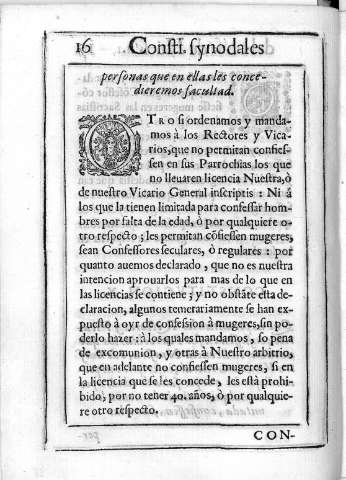 16 Consti. synodales
personas que en ellas les conce-
dieremos facultad.
OTRO si ordenamos y manda-
mos à los Rectores y Vica-
rios, que no permitan confies-
sen en sus Parrochias los que
no lleuaren licencia Nuestra, ò
de nuestro Vicario General inscriptis: Ni à
los que la tienen limitada para confessar hom-
bres por falta de la edad, ò por qualquiere o-
tro respecto; les permitan cõfiessen mugeres,
sean Confessores seculares, ò regulares: por
quanto auemos declarado, que no es nuestra
intencion aprouarlos para mas de lo que en
las licencias se contiene; y no obstãte esta de-
claracion, algunos temerariamente se han ex-
puesto à oyr de confession à mugeres, sin po-
derlo hazer: à los quales mandamos, so pena
de excomunion, y otras à Nuestro arbitrio,
que en adelante no confiessen mugeres, si en
la licencia que se les concede, les està prohi-
bido, por no tener 40. años, ò por qualquie-
re otro respecto.
CON-